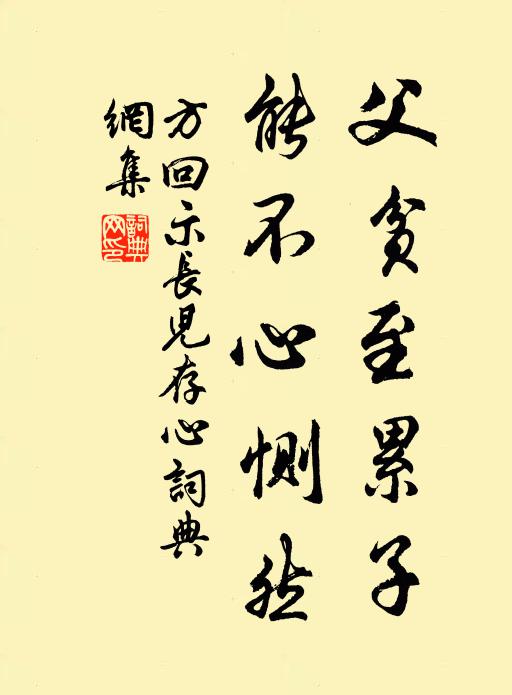 父貧至累子
能不心惻然
方回示長兒存心詞典
網集
詞典
网印